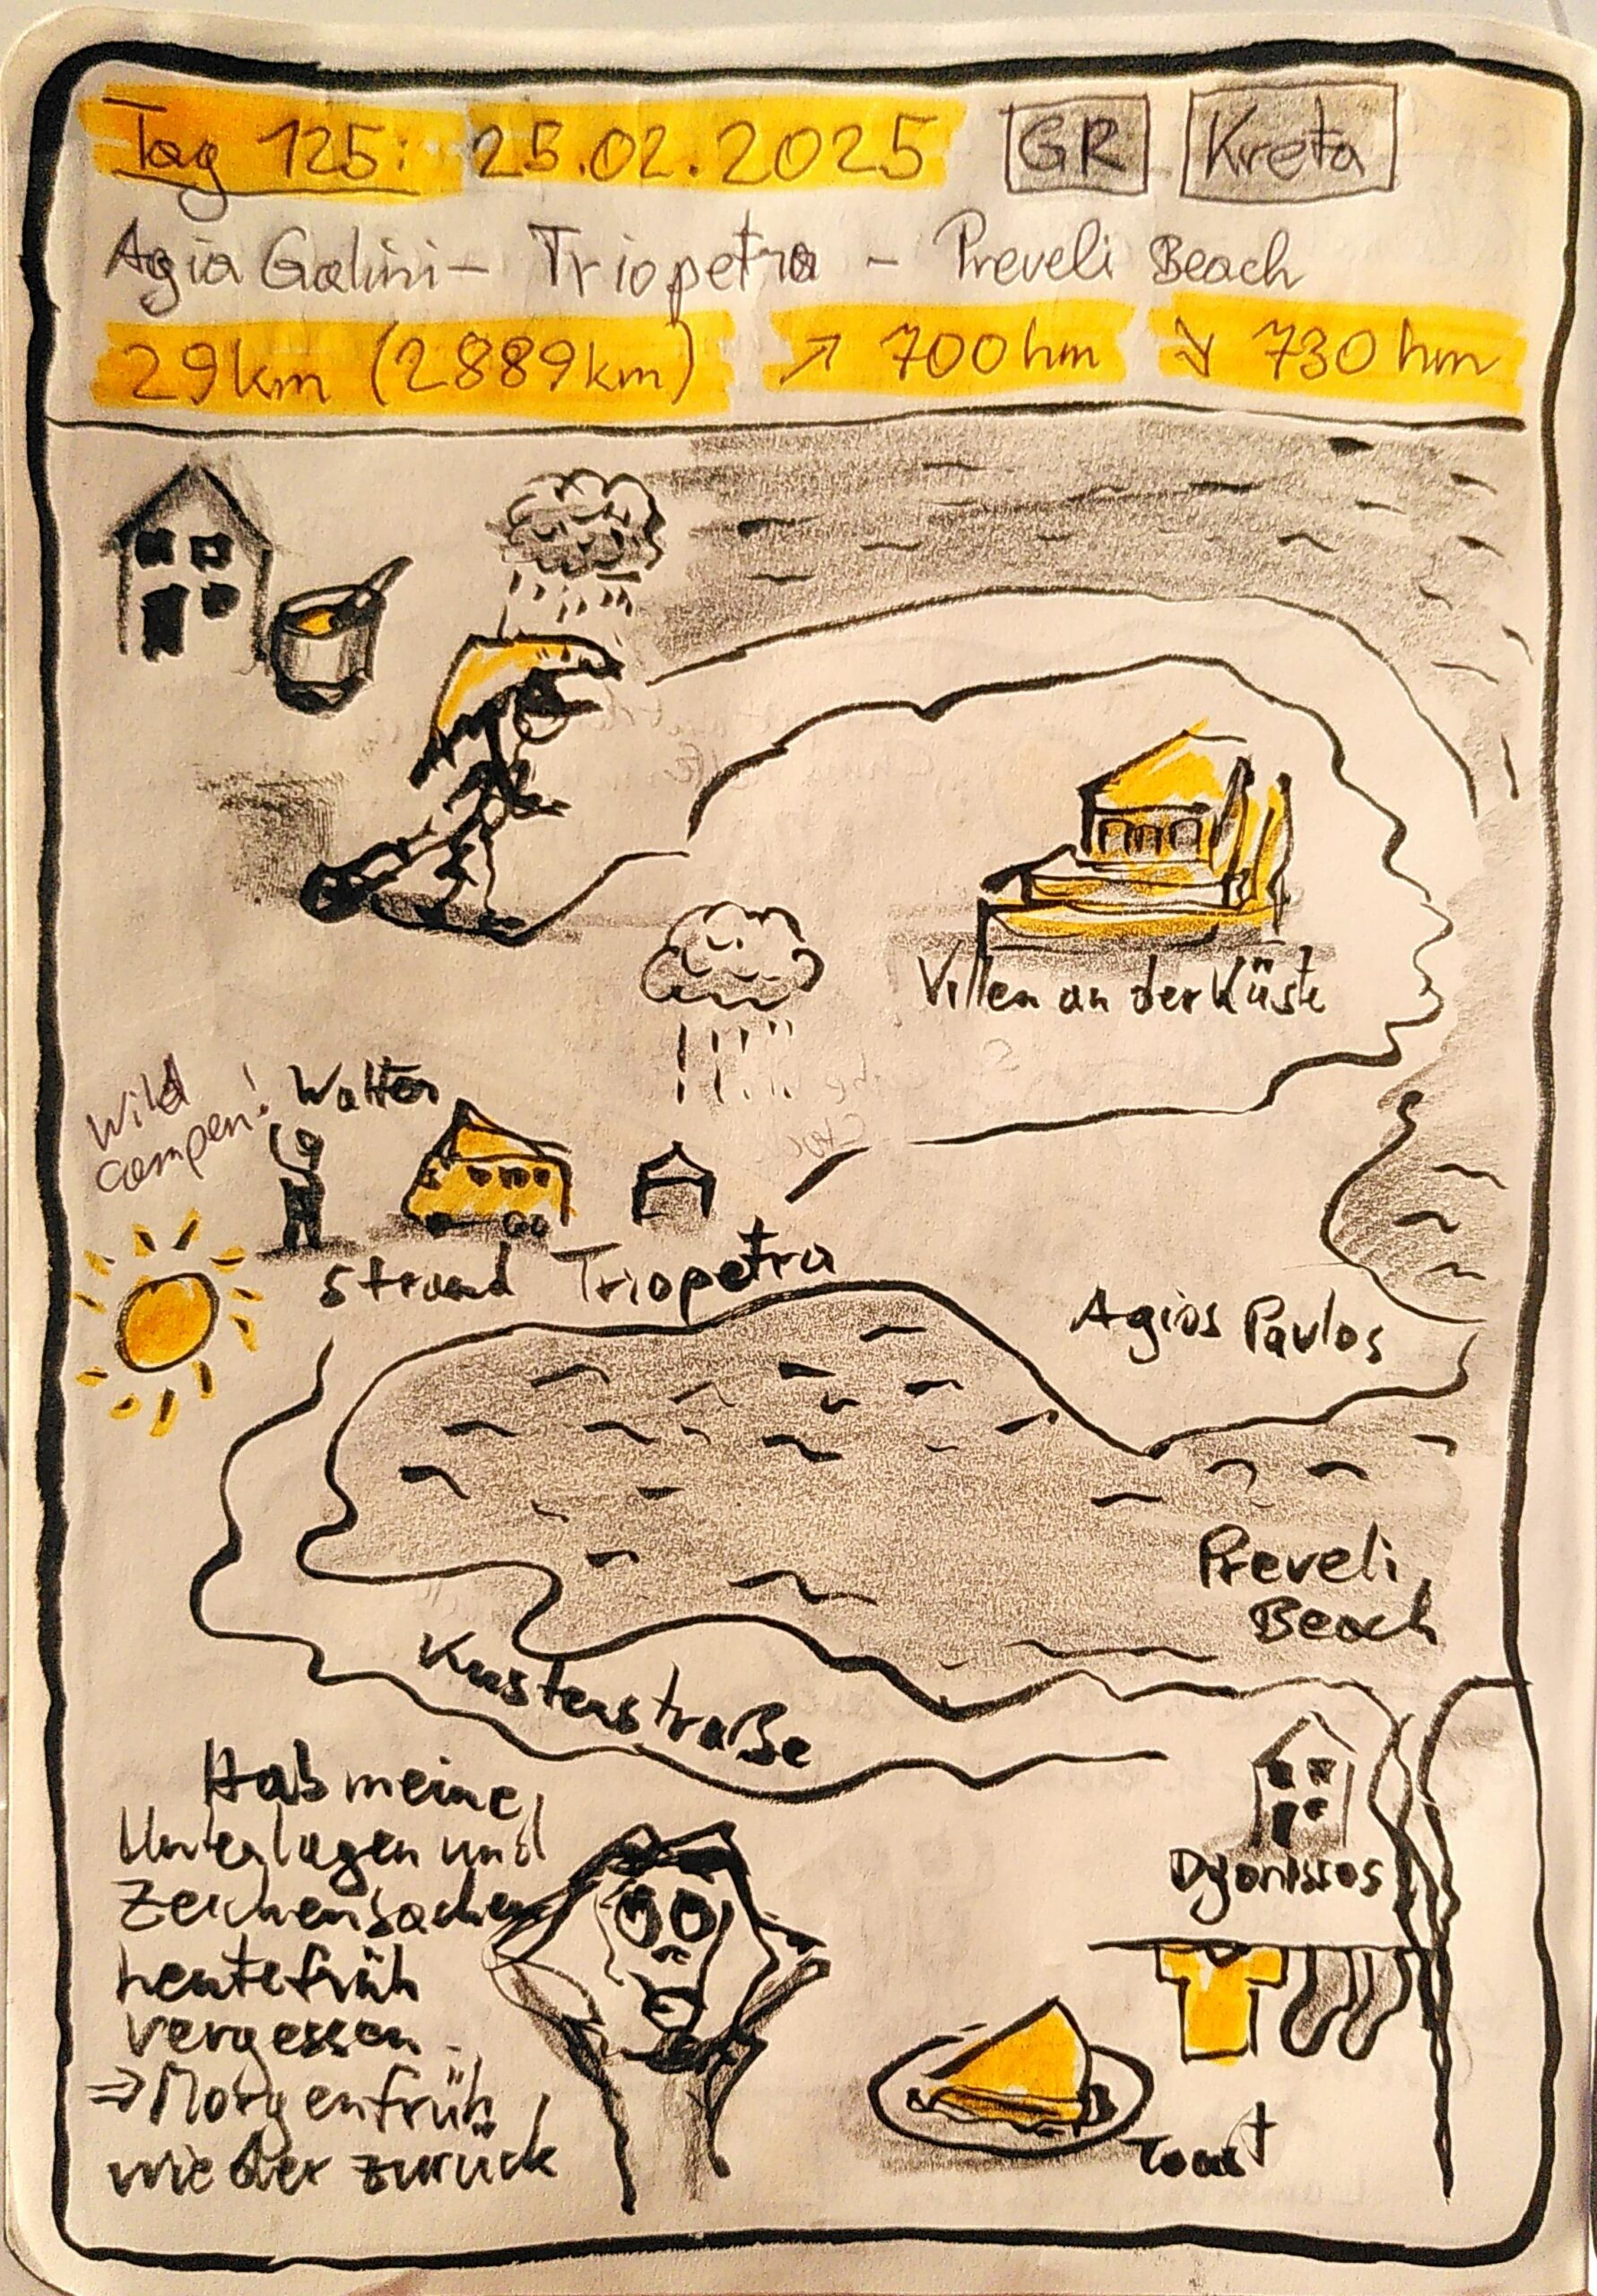 Tag 125: 25.02.2025 GR Kreta
Agia Galini - Triopetra - Preveli Beach
29km (2889km) ↗ 700hm ↘ 730hm
Villen an der Küste
Wild
campen!
Walter
Strand Triopetra
Agios Pavlos
Preveli
Beach
Küstenstraße
Hab meine
Unterlagen und
Zeichensachen
heute früh
vergessen.
⇒ Morgen früh
wieder zurück
Dyonissos
Toast